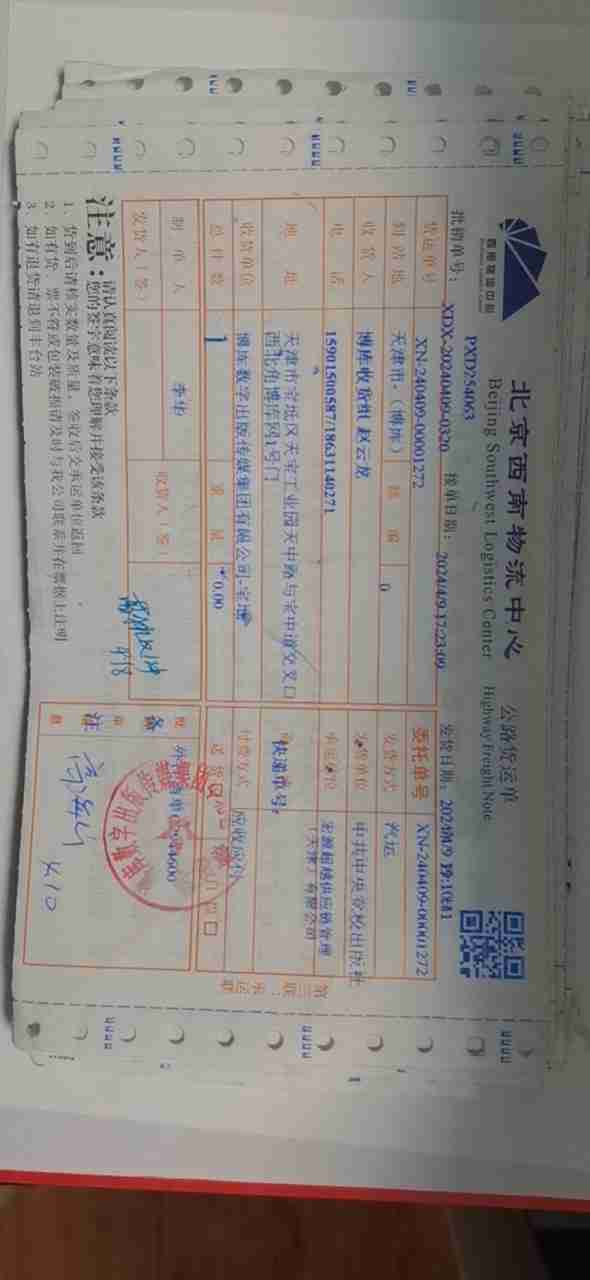 北京西南物流中心 公路货运单
Beijing Southwest Logistics Center Highway Freight Note
西南物流中心
PXD254063
批销单号: XDX-20240409-0320 接单日期: 2024/4/9 17:23:09 发货日期: 2024/4/9 19:10:41
货运单号 XN-240409-00001272 委托单号 XN-240409-00001272
到站地 天津市-(博库) 0 发货方式 汽运
收货人 博库收货组 赵云龙 发货单位 中共中央党校出版社
电话 15901500587/18631140271 承运单位 宏源超越供应链管理(天津)有限公司
地址 天津市宝坻区天京工业园天中路与宝中道交叉口西北角博库网1号门 快递单号:
收货单位 博库数字出版传媒集团有限公司-宝坻 付费方式 应收应付
总件数 1 重量 0.00
制单人 李华 收货人(签) 9/8
发货人(签) 备注
4.10
注意: 请认真阅读以下条款
您的签字意味着您理解并接受该条款
1、货到后请核实数量及质量,签收后交承运单位返回
2、如有货、票不符或包装破损请及时与我公司联系并在票据上注明
3、如有退货请退到丰台站
第三联:承运联